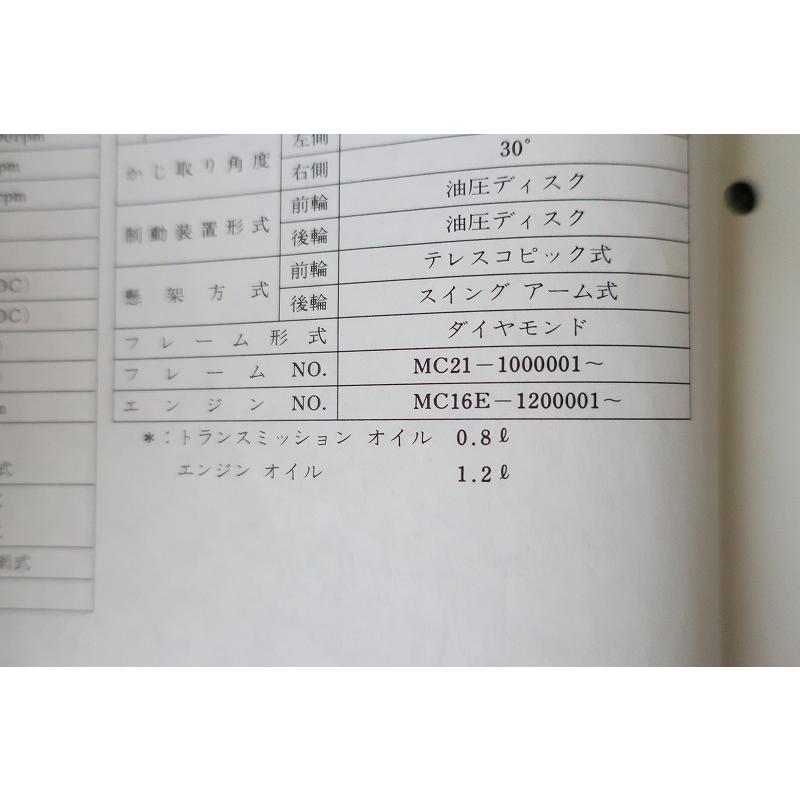 rpm
pm
rpm
DC)
DC)
式
式
かじ取り角度 左側
右側 30°
制動装置形式 前輪 油圧ディスク
後輪 油圧ディスク
懸架方式 前輪 テレスコピック式
後輪 スイング アーム式
フレーム形式 ダイヤモンド
フレーム NO. MC21－1000001～
エンジン NO. MC16E－1200001～
＊：トランスミッション オイル 0.8ℓ
エンジン オイル 1.2ℓ